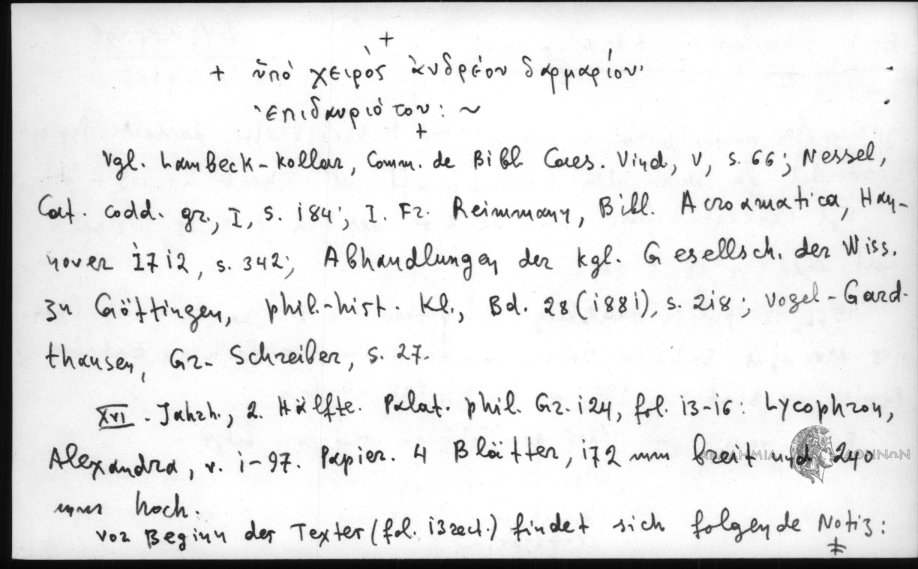 +
+ ὑπὸ χειρὸς ἀνδρέου δαρμαρίου·
ἐπιδαυριότου: ~
+
Vgl. Lambeck-Kollar, Comm. de Bibl. Caes. Vind., V, S. 66; Nessel,
Cat. codd. gr., I, S. 184; I. Fr. Reimmann, Bibl. Acroamatica, Han-
nover 1712, S. 342; Abhandlungen der kgl. Gesellsch. der Wiss.
zu Göttingen, phil.-hist. Kl., Bd. 28 (1881), S. 218; Vogel-Gard-
thausen, Gr. Schreiber, S. 27.
XVI. Jahrh., 2. Hälfte. Palat. phil. Gr. 124, fol. 13-16: Lycophron,
Alexandra, v. 1-97. Papier. 4 Blätter, 172 mm breit und 240
mm hoch.
Vor Beginn des Textes (fol. 13rect.) findet sich folgende Notiz:
‡